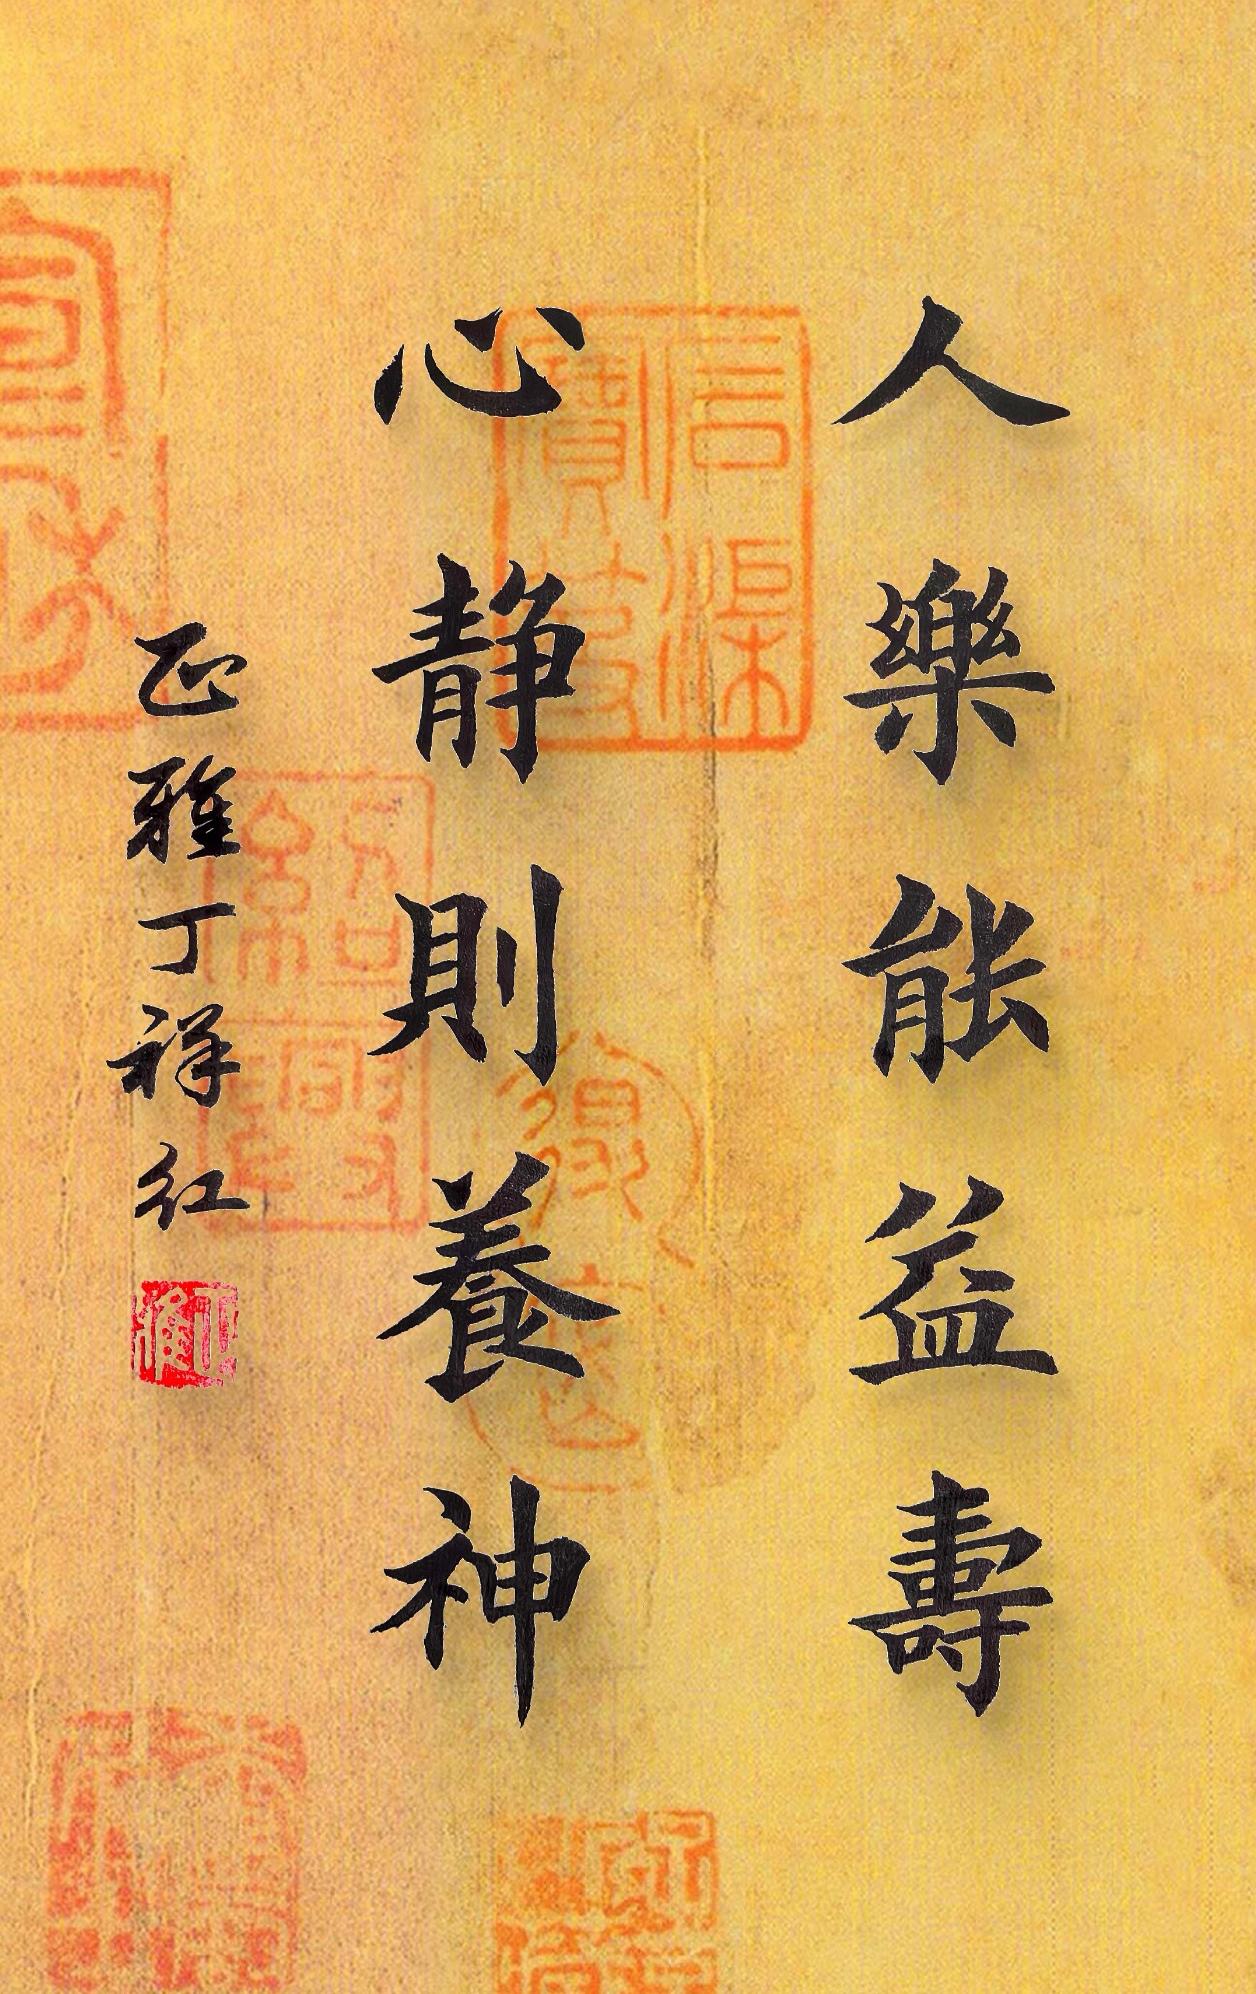 人樂能益壽
心静則養神
正雅丁祥红